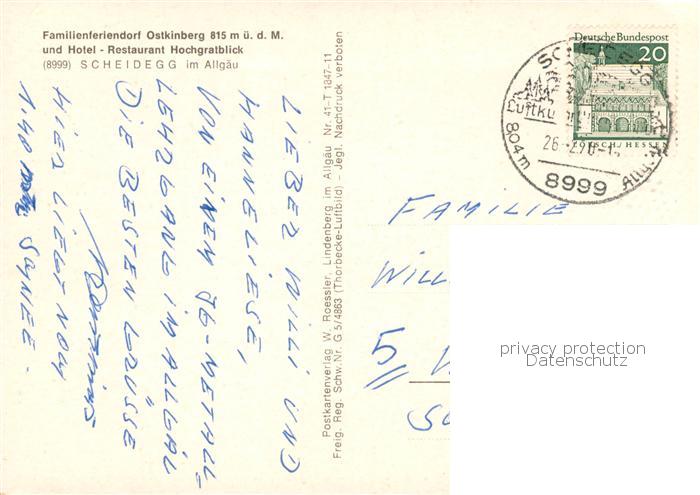 Familienferiendorf Ostkinberg 815 m ü. d. M.
und Hotel - Restaurant Hochgratblick
(8999) SCHEIDEGG im Allgäu
LIEBER WILLI UND
HANNELIESE,
VON EINEM IG-METALL-
LEHRGANG IM ALLGÄU
DIE BESTEN GRÜSSE
HIER LIEGT NOCH
1,40 SCHNEE.
Postkartenverlag W. Roessler, Lindenberg im Allgäu Nr. 41-T 1847-11
Freig. Reg. Schw. Nr. G 5/4863 (Thorbecke-Luftbild) - Jegl. Nachdruck verboten
Deutsche Bundespost
20
LORSCH/HESSEN
SCHEIDEGG
Luftku
804m
8999
Allgäu
FAMILIE
WILL
5
privacy protection
Datenschutz